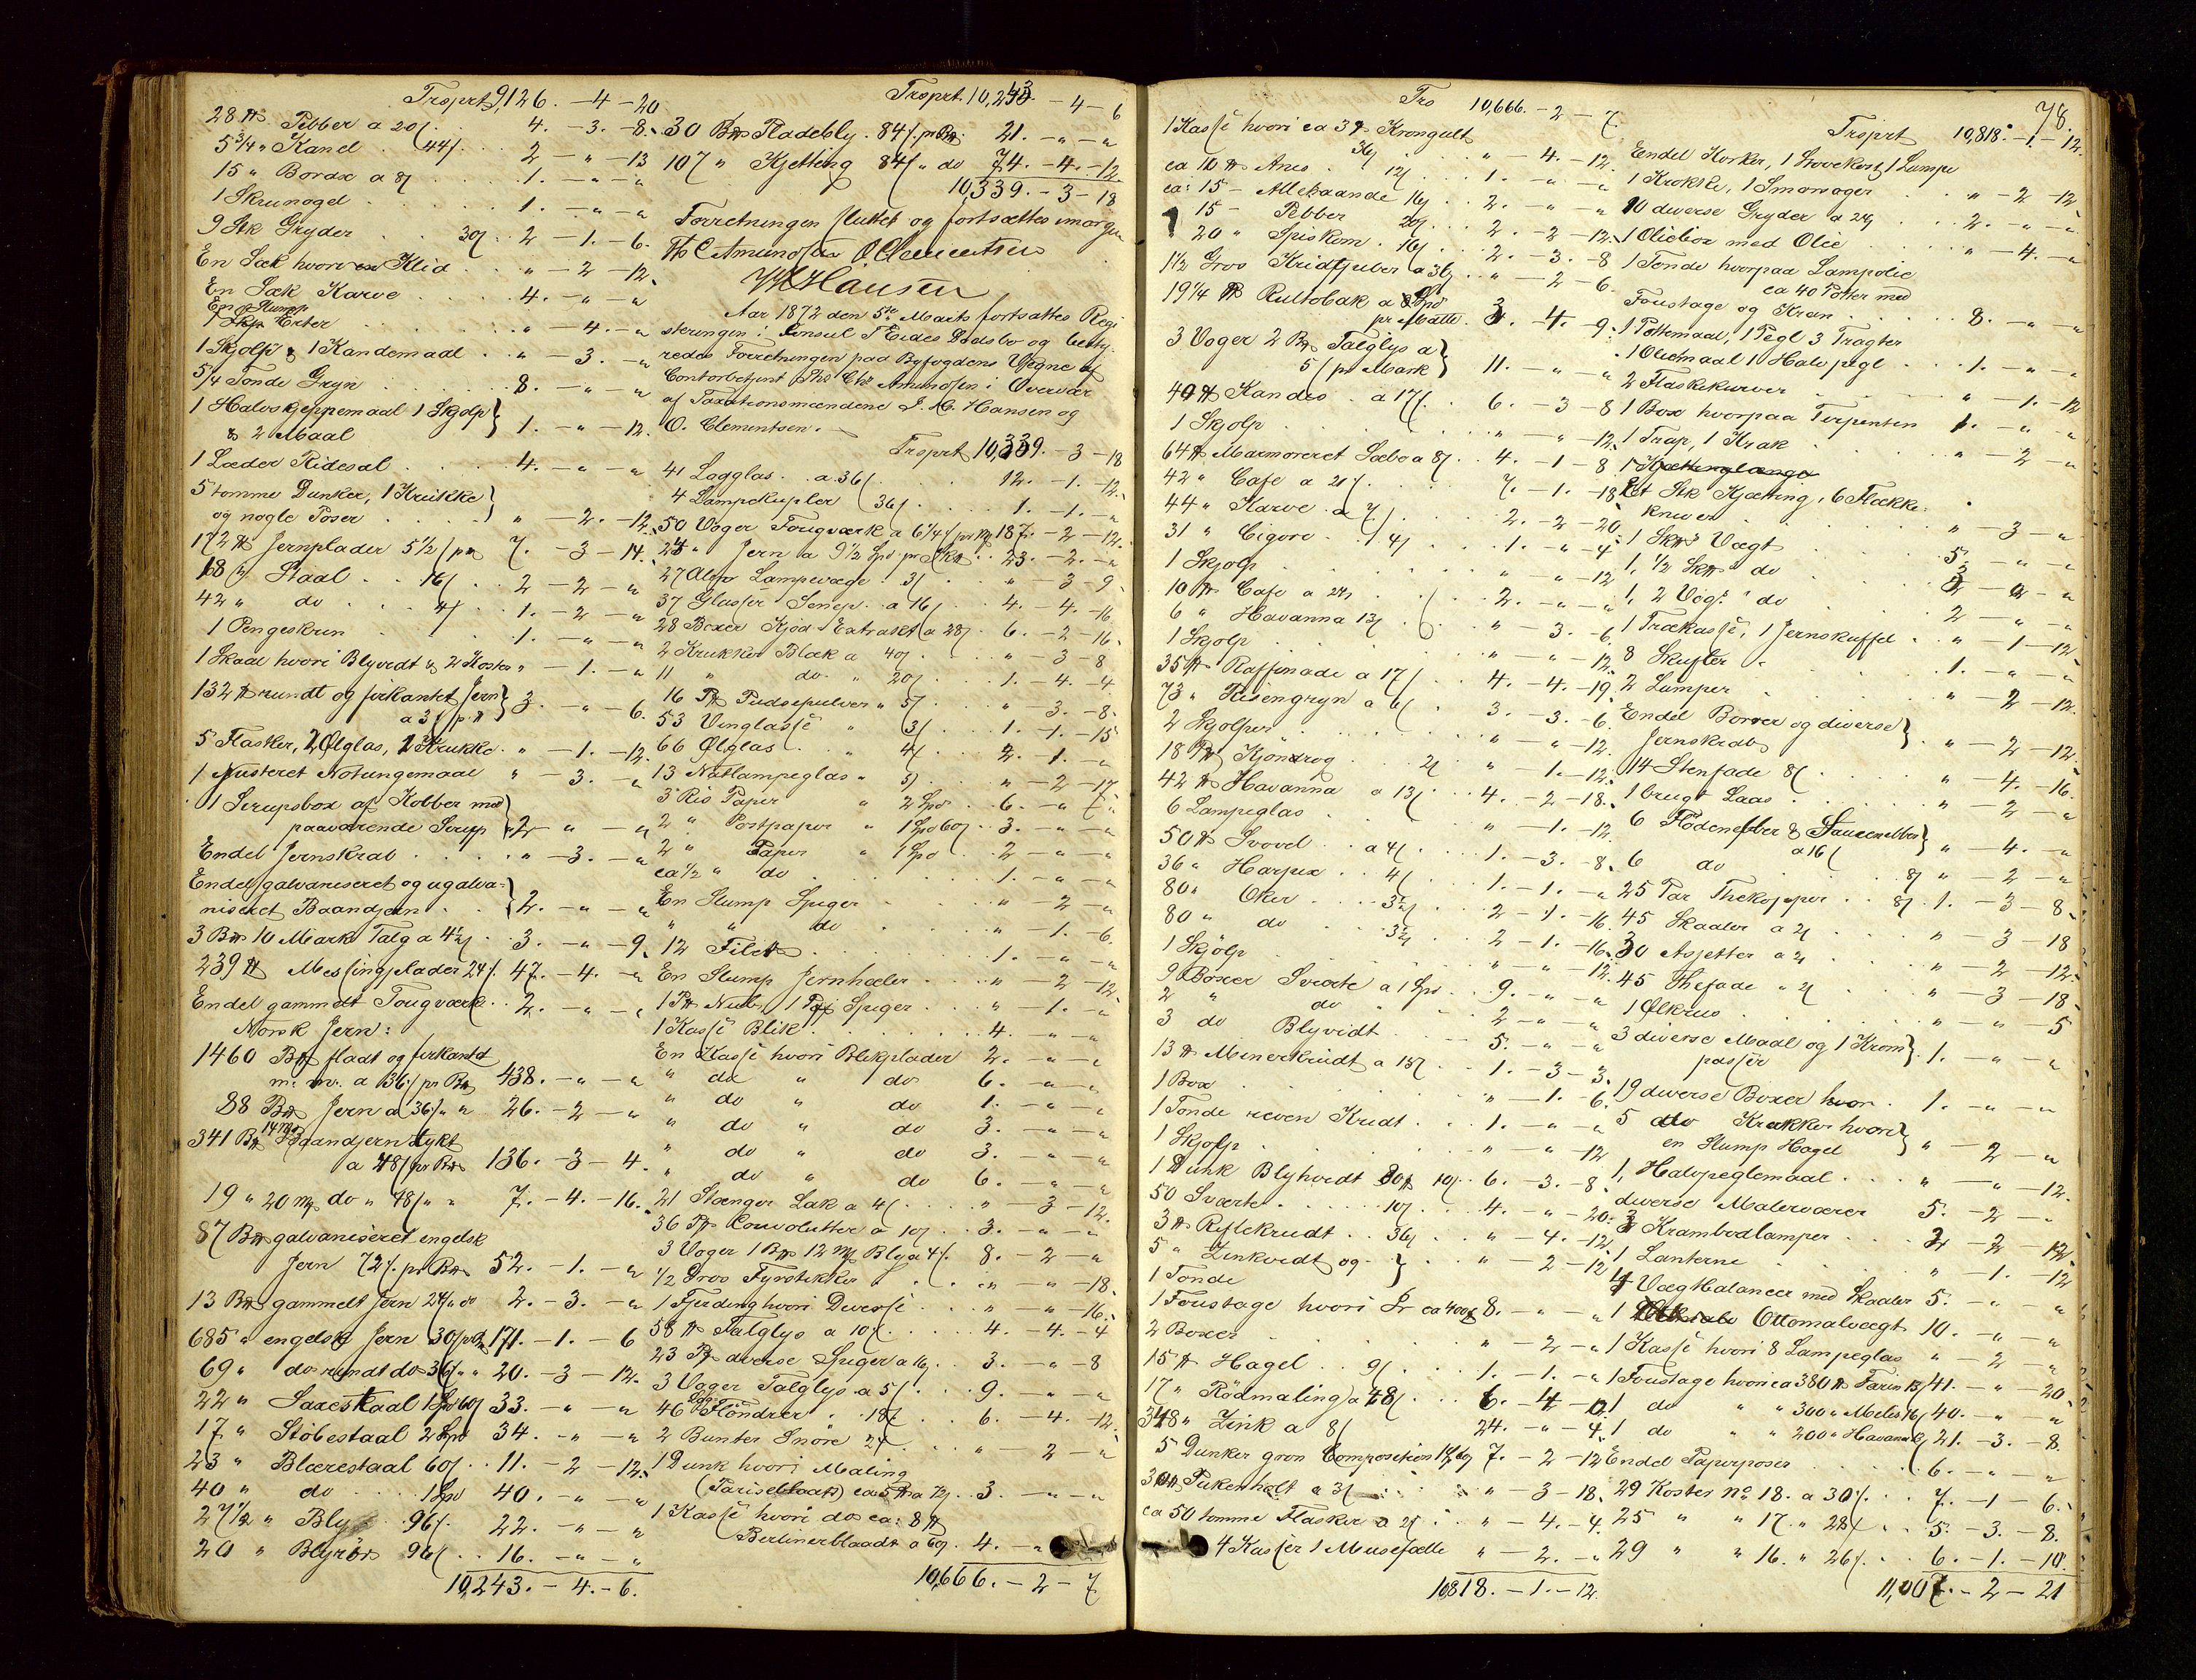 Trsprt 9,126. - 4 - 20
28 ℔ Pebber a 20 4. - 3. - 8.
5 3/4 " Kanel 44 2 - " - 13
15 " Borax a 8 1. - " - "
1 Skrunagel 1. - " - "
9 Stk Gryder 30 2 - 1. - 6.
En Sæk hvori Klid " - 2 - 12.
En Sæk Karve 4. - " - "
En Slump
1 Skp Erter " - 4. - "
1 Skjolp & 1 Kandemaal " - 3. - "
5 1/4 Tønde Gryn 8. - " - "
1 Halvskjeppemaal 1 Skjolp
& 2 Maal 1. - " - 12.
1 Læder Ridesal 4. - " - "
5 tomme Dunker, 1 Krukke
og nogle Poser " - 2. - 12.
172 ℔ Jernplader 5 1/2 pr ℔ 7. - 3 - 14.
68 " Staal 16 2 - 2 - "
42 " do 4 1. - 2 - "
1 Pengeskrin 1. - " - "
1 Skaal hvori Blyvidt & 2 Koster " - 1. - "
132 ℔ rundt og firkantet Jern
a 3 pr ℔ 3. - " - 6.
5 Flasker, 2 Ølglas, 2 Krukke " - 1. - 12.
1 Justeret Notungemaal " - 3. - "
1 Sirupsbox af Kobber med
paaværende Sirup 2 - " - "
Endel Jernskrab " - 3. - "
Endel galvaniseret og ugalva-
niseret Baandjern 2. - " - "
3 B℔ 10 Mark Talg a 4 1/2 3. - " - 9.
239 ℔ Messingplader 24 47. - 4. - "
Endel gammelt Tougværk 2. - " - "
Norsk Jern:
1460 B℔ fladt og firkantet
m. m. a 36 pr B℔ 438. - " - "
88 B℔ Jern a 36 " " 26. - 2 - "
341 B℔ 14 Mk Baandjern tykt
a 48 pr B℔ 136. - 3 - 4.
19 " 20 Mk do " 48 " " 7. - 4. - 16.
87 B℔ galvaniseret engelsk
Jern 72 pr B℔ 52. - 1. - "
13 B℔ gammelt Jern 24 " do 2. - 3. - "
685 " engelsk Jern 30 pr B℔ 171. - 1. - 6
69 " do rundt do 36 " " 20. - 3 - 12.
22 " Saxestaal 1 Spd 60 33. - " - "
17 " Støbestaal 2 Spd 34. - " - "
23 " Blærestaal 60 11. - 2 - 12.
40 " do 1 Spd 40. - " - "
27 1/2 " Bly 96 22. - " - "
20 " Blyrør 96 16. - " - "
10,243. - 4. - 6.
Trsprt 10,243. - 4 - 6
30 B℔ Pladebly 84 pr B℔ 21. - " - "
107 " Kjetting 84 " do 74. - 4. - 12
10,339. - 3 - 18
Forretningen sluttet og fortsættes imorgen
Chr Amundsen O Clementsen
Hansen
Aar 1872 den 5te Marts fortsattes Regi-
steringen i Consul T Eides Dødsbo og besty-
redes Forretningen paa Byfogdens Vegne af
Contorbetjent Ths Chr Amundsen i Overvær
af Taxationsmændene J. M. Hansen og
O. Clementsen.
Trsprt 10,339. - 3 - 18
41 Lagglas a 36 12. - 1. - 12.
4 Lampekupler 36 1. - 1. - "
50 Voger Tougværk a 6 1/4 pr Mk 187. - 2 - 12.
24 " Jern a 9 1/2 Spd pr Sk℔ 23. - 2. - "
27 Alen Lampevæge 3 " - 3 - 9
37 Glasser Senep a 16 4. - 4. - 16
28 Boxer Kjød Extrakt a 28 6. - 2 - 16.
2 Krukker Blæk a 40 " - 3 - 8
11 " do " 20 1. - 4. - 4
16 Pk Pudsepulver " 5 " - 3. - 8
53 Vinglasse " 3 1. - 1. - 15
66 Ølglas " 4 2. - 1. - "
13 Natlampeglas " 5 " - 2 - 17
3 Ris Papir " 2 Spd 6. - " - "
2 " Postpapir " 1 Spd 60 3. - " - "
2 " Papir " 1 Spd 2 - " - "
ca 1/2 " do 1. - " - "
En Slump Spiger " - 2 - "
" " do " - 1. - 6.
12 File 1. - " - "
En Slump Jernhæler " - 2 - 12.
1 Pk Nub, 1 Pk Spiger " - 1. - "
1 Kasse Blik 4. - " - "
En Kasse hvori Blikplader 2. - " - "
" do " do 6. - " - "
" do " do 1. - " - "
" do " do 3. - " - "
" do " do 3. - " - "
" do " do 6. - " - "
21 Stænger Lak a 4 " - 3 - 12.
36 Pk Convolutter a 10 3. - " - "
3 Voger 1 B℔ 12 Mk Bly a 4 8. - 2 - "
1/2 Gros Fyrstikker " - " - 18.
1 Fjerding hvori Diverse " - " - 16.
58 ℔ Talglys a 10 4. - 4. - 4
23 Pk diverse Spiger a 16 3. - " - 8
3 Voger Talglys a 5 9. - " - "
46 Flöndrer 18 6. - 4. - 12.
2 Bunter Snöre 24 " - 2 - "
1 Dunk hvori Maling
(Pariserblaat) ca 5 ℔ a 72 3. - " - "
1 Kasse hvori do ca: 8 ℔
Berlinerblaat a 60 4. - "
10,666. - 2 - 7
78.
Trs 10,666. - 2 - 7
1 Kasse hvori ca 3 ℔ Krongult
36 " - 4. - 12
ca 10 ℔ Anis 12 1. - " - "
ca: 15 - Allehaande 16 2. - " - "
15 - Pebber 20 2. - 2 - 12.
20 " Spiskom 16 2. - 3. - 8
1 1/2 Gros Kridtpiber a 36 " - 2 - 6
19 1/4 ℔ Rultobak a
pr Mtte 3. - 4. - 9.
3 Voger 2 B℔ Talglys a
5 pr Mark 11. - " - "
40 ℔ Kandis a 17 6. - 3 - 8
1 Skjolp " - " - 12.
64 ℔ Marmoreret Sæbe a 8 4. - 1 - 8
42 " Cafe a 21 7. - 1. - 18
44 " Karve a 7 2. - 2 - 20.
31 " Cigore 4 1. - " - 4
1 Skjolp " - " - 12
10 ℔ Cafe a 24 2. - " - "
6 " Havanna 13 " - 3. - 6
1 Skjolp " - " - 12.
35 ℔ Raffinade a 17 4. - 4. - 19.
73 " Risengryn a 6 3. - 3. - 6
2 Skjolper " - " - 12.
18 ℔ Kjönrog 2 " - 1. - 12.
42 ℔ Havanna a 13 4. - 2 - 18.
6 Lampeglas " - 1. - 12.
50 ℔ Svovel a 4 1. - 3. - 8
36 " Harpix 4 1. - 1. - "
80 " Oker 3 1/2 2 - 1. - 16.
80 " do 3 1/2 2 - 1. - 16.
1 Skjölp " - " - 12.
9 Boxer Sværte a 1 Spd 9. - " - "
2 " do 2 - " - "
3 do Blyvidt 5. - " - "
13 ℔ Minerkrudt a 15 1. - 3 - 3.
1 Box " - 1. - 6.
1 Tønde reven Kridt 1. - " - "
1 Skjolp " - " - 12
1 Dunk Blyhvidt 80 ℔ 10 6. - 3. - 8
50 Sværte 10 4. - " - 20.
3 ℔ Riflekrudt 36 " - 4. - 12
5 " Zinkvidt og
1 Tønde " - 2 - 12
1 Foustage hvori Lr ca 400 ℔ 8. - " - "
2 Boxer " - 2 - "
15 ℔ Hagel 9 1. - 1. - "
17 " Rödmaling a 48 6. - 4 - 0
348 " Zink a 8 24. - " - 4.
5 Dunker grøn Composition 1 Spd 60 7. - 2 - 12
30 ℔ Pukenholt a 3 " - 3 - 18.
ca 50 tomme Flasker a 2 " - 4. - 4.
4 Kasser 1 Musefælle " - 2. - "
10,818. - 1. - 12.
Trsprt 10,818. - 1. - 12.
Endel Korker, 1 Stovekost, 1 Lampe
1 Krukke, 1 Smørvager " - 2 - 12
10 diverse Gryder a 24 2. - " - "
1 Oliebox med Olie " - 4. - "
1 Tønde hvorpaa Lampolie
ca 40 Potter med
Foustage og Kran 8. - " - "
1 Pottemaal, 1 Pegl 3 Tragter
1 Oliemaal 1 Halvpegl 1. - " - "
2 Flaskekurver " - 1. - 12
1 Box hvorpaa Terpentin 1. - " - "
1 Trap, 1 Krak " - 2 - "
1 Kjettinglænge
Et Stk Kjetting, 6 Flække-
kniver " - 3 - "
1 Sk℔s Vægt 5. - " - "
1, 1/2 Sk℔ do 3 - " - "
1, 2 Vogs " do 2 - " - "
1 Trækasse, 1 Jernskuffel " - 1 - 12
8 Skufler 1. - " - "
2 Lamper " - 2 - 12.
Endel Borrer og diverse
Jernskrab " - 2 - 12.
14 Stenfade 8 " - 4. - 16.
1 brugt Laas " - 2 - "
6 Flödenebber & Saucenebber
a 16 " - 4. - "
6 do 8 " - 2 - "
25 Par Thekopper 8 1. - 3 - 8
45 Skaaler a 2 " - 3 - 18
30 Asjetter a 2 " - 2 - 12.
45 Thefade " 2 " - 3 - 18
1 Ølkrus " - " - 5
3 diverse Maal og 1 Krom-
passer 1. - " - "
19 diverse Boxer hvor 1. - " - "
5 do Krukker hvori
en Slump Hagel " - 2 - "
1, Halvpeglemaal " - " - 12.
diverse Malervarer 5. - 2 - "
3 Krambodlamper 2 - 2 - 12
1 Lanterne " - 1. - 12
4 Vægtbalancer med Skaaler 5. - " - "
1 Ottomalvægt 10. - " - "
1 Kasse hvori 8 Lampeglas " - 2 - "
1 Foustage hvori ca 380 ℔ Farin 13 41. - " - 20
1 do " " 300 " Melis 16 40. - " - "
1 do " " 200 " Havana 21. - 3. - 8.
Endel Papirposer 6. - " - "
29 Koster No 18. a 30 7. - 1 - 6.
25 " " 17. " 28 5. - 3. - 8.
29 " " 16. " 26 6. - 1. - 10
11,007. - 2 - 21